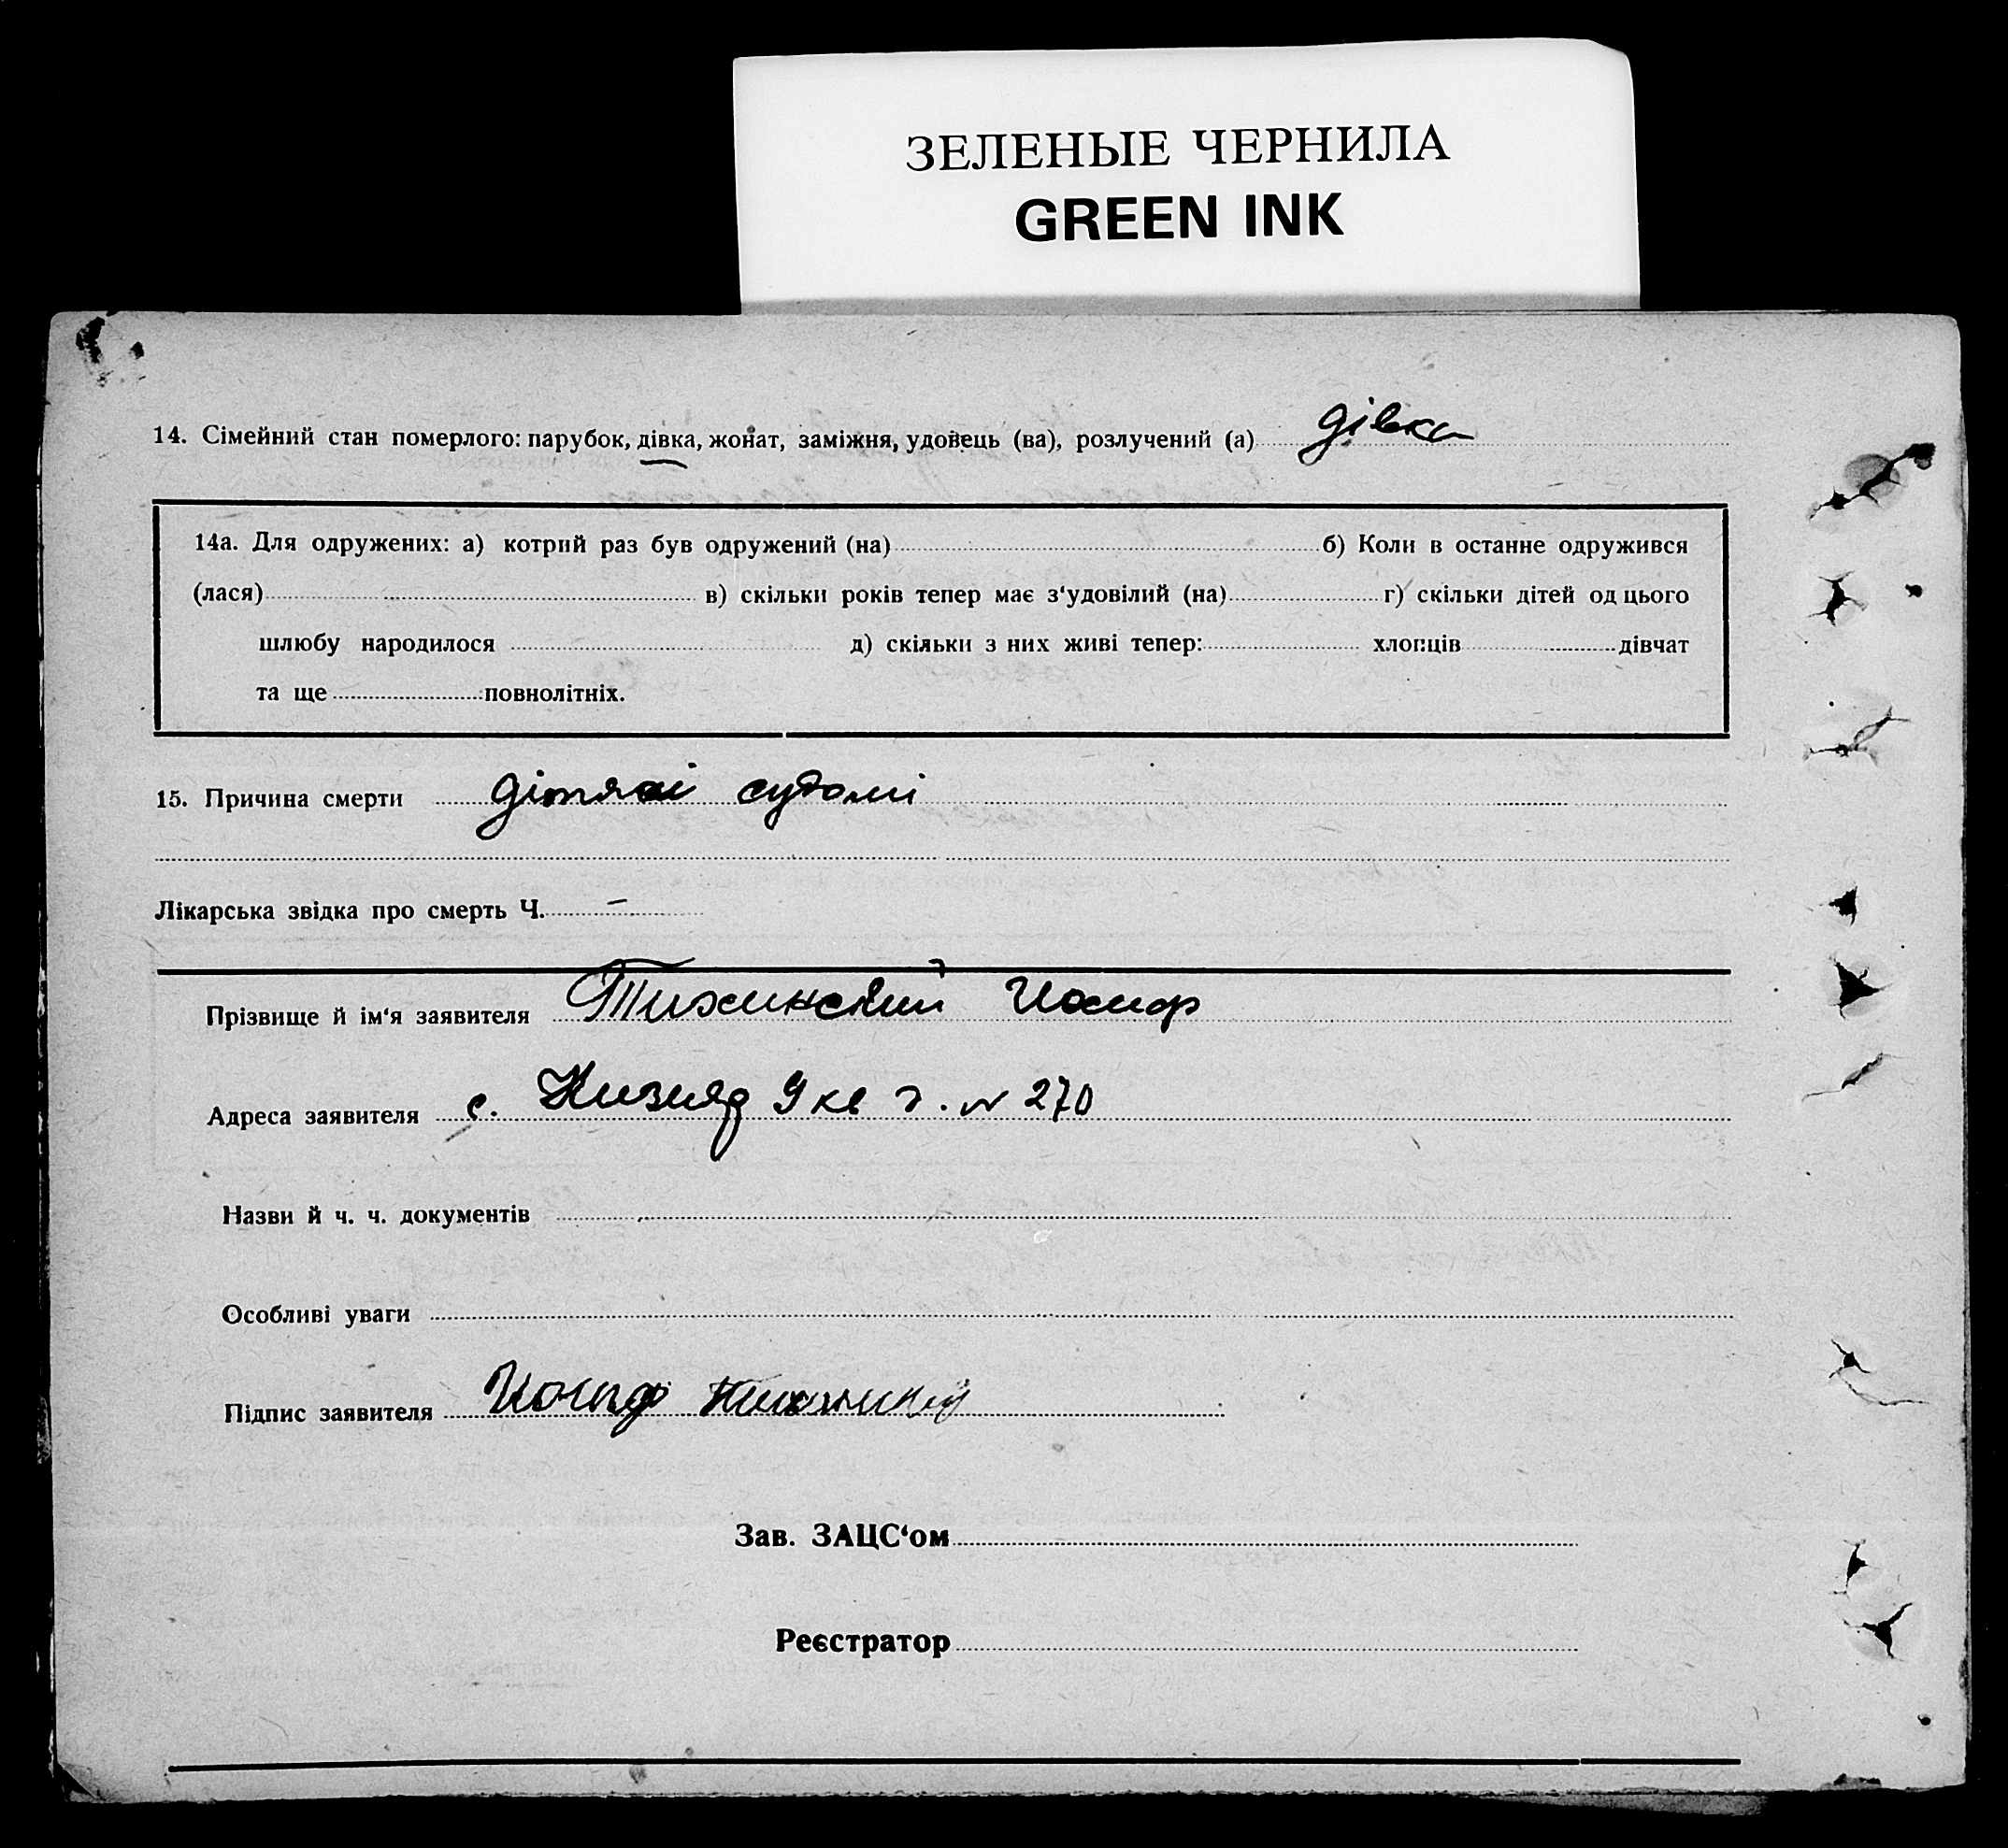 ЗЕЛЕНЫЕ ЧЕРНИЛА
GREEN INK
14. Сімейний стан померлого: парубок, дівка, жонат, заміжня, удовець (ва), розлучений (а) дівка
14а. Для одружених: а) котрий раз був одружений (на) б) Коли в останне одружився
(лася) в) скільки років тепер має з‘удовілий (на) г) скільки дітей од цього
шлюбу народилося д) скільки з них живі тепер: хлопців дівчат
та ще повнолітніх.
15. Причина смерти дітячі судомі
Лікарська звідка про смерть Ч. –
Прізвище й ім‘я заявителя Тихинский Иосиф
Адреса заявителя с. 9 кв д. № 270
Назви й ч. ч. документів
Особливі уваги
Підпис заявителя Иосиф
Зав. ЗАЦС‘ом
Реєстратор